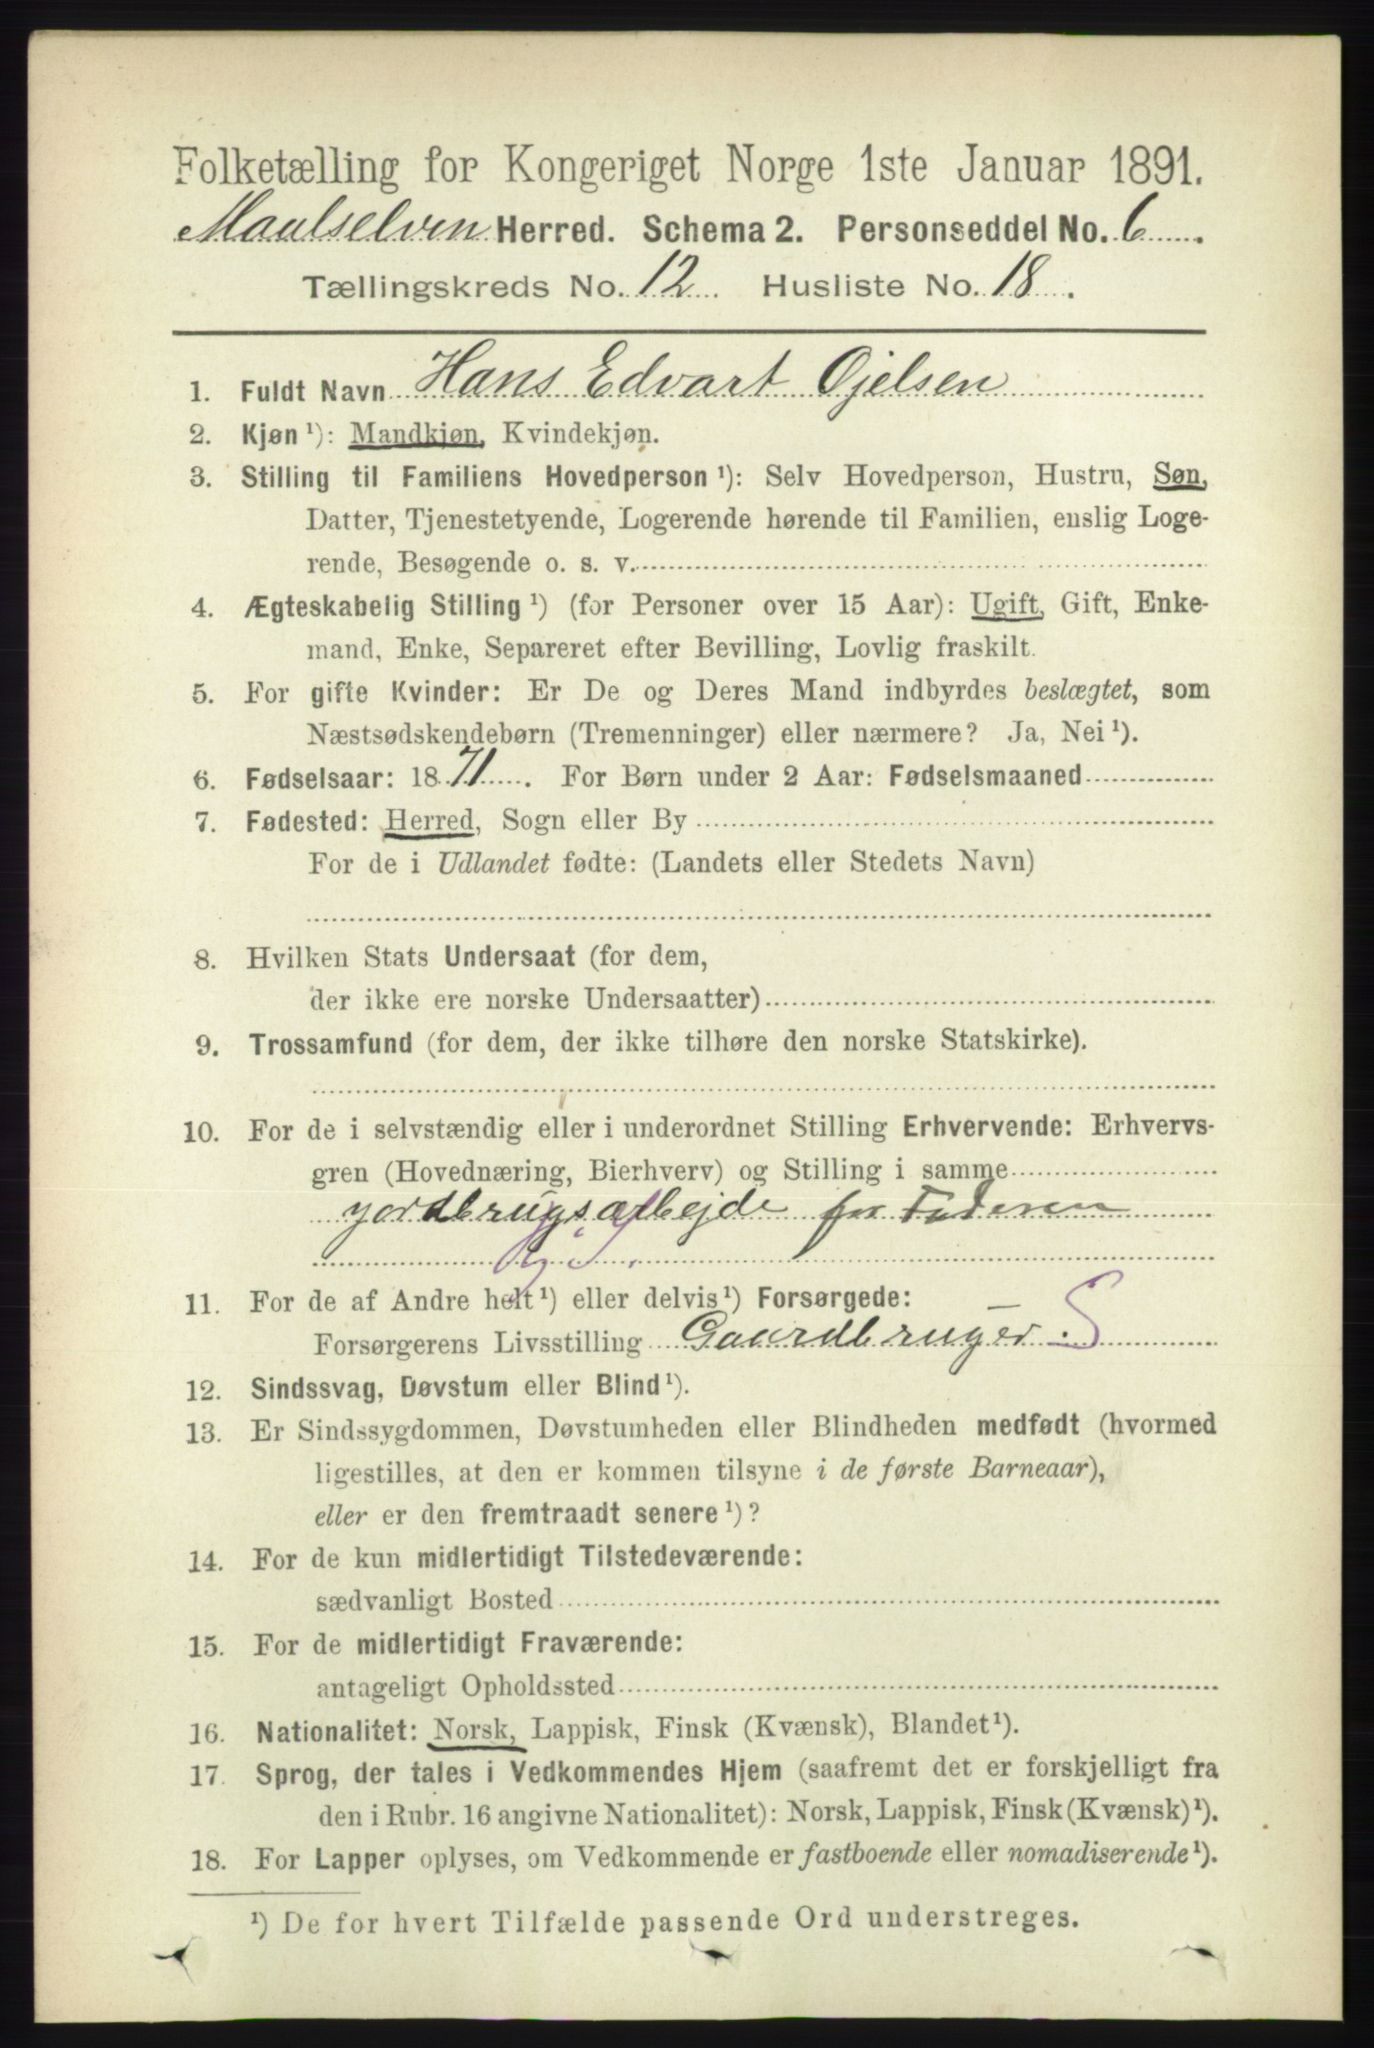 Folketælling for Kongeriget Norge 1ste Januar 1891.
Maalselven Herred. Schema 2. Personseddel No. 6
Tællingskreds No. 12 Husliste No. 18.
1. Fuldt Navn Hans Edvart Ojelsen
2. Kjøn ¹): Mandkjøn, Kvindekjøn.
3. Stilling til Familiens Hovedperson ¹): Selv Hovedperson, Hustru, Søn,
Datter, Tjenestetyende, Logerende hørende til Familien, enslig Loge-
rende, Besøgende o. s. v.
4. Ægteskabelig Stilling ¹) (for Personer over 15 Aar): Ugift, Gift, Enke-
mand, Enke, Separeret efter Bevilling, Lovlig fraskilt.
5. For gifte Kvinder: Er De og Deres Mand indbyrdes beslægtet, som
Næstsødskendebørn (Tremenninger) eller nærmere? Ja, Nei ¹).
6. Fødselsaar: 1871. For Børn under 2 Aar: Fødselsmaaned
7. Fødested: Herred, Sogn eller By
For de i Udlandet fødte: (Landets eller Stedets Navn)
8. Hvilken Stats Undersaat (for dem,
der ikke ere norske Undersaatter)
9. Trossamfund (for dem, der ikke tilhøre den norske Statskirke).
10. For de i selvstændig eller i underordnet Stilling Erhvervende: Erhvervs-
gren (Hovednæring, Bierhverv) og Stilling i samme
yordbrugsarbejde for Faderen
11. For de af Andre helt ¹) eller delvis ¹) Forsørgede:
Forsørgerens Livsstilling Gaardbruger. S
12. Sindssvag, Døvstum eller Blind ¹).
13. Er Sindssygdommen, Døvstumheden eller Blindheden medfødt (hvormed
ligestilles, at den er kommen tilsyne i de første Barneaar),
eller er den fremtraadt senere ¹)?
14. For de kun midlertidigt Tilstedeværende:
sædvanligt Bosted
15. For de midlertidigt Fraværende:
antageligt Opholdssted
16. Nationalitet: Norsk, Lappisk, Finsk (Kvænsk), Blandet ¹).
17. Sprog, der tales i Vedkommendes Hjem (saafremt det er forskjelligt fra
den i Rubr. 16 angivne Nationalitet): Norsk, Lappisk, Finsk (Kvænsk) ¹).
18. For Lapper oplyses, om Vedkommende er fastboende eller nomadiserende ¹).
¹) De for hvert Tilfælde passende Ord understreges.